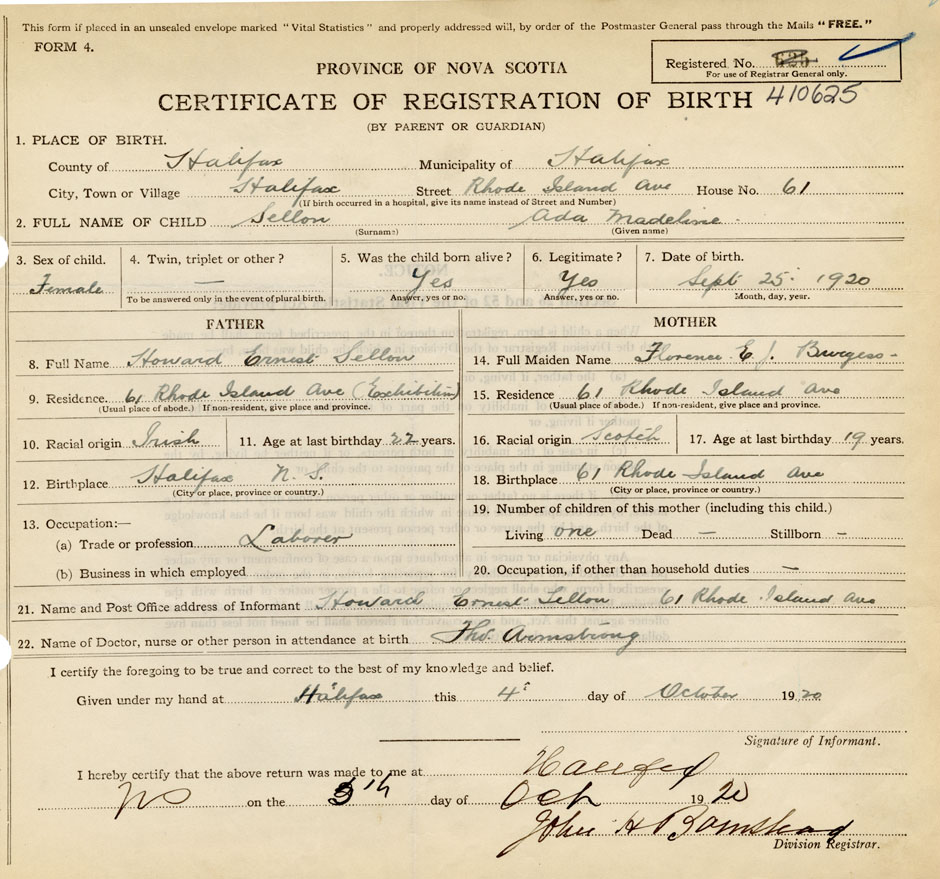 This form if placed in an unsealed envelope marked "Vital Statistics" and properly addressed will, by order of the Postmaster General pass through the Mails "FREE."
FORM 4.
Registered No. 625
For use of Registrar General only.
PROVINCE OF NOVA SCOTIA
CERTIFICATE OF REGISTRATION OF BIRTH 410625
(BY PARENT OR GUARDIAN)
1. PLACE OF BIRTH.
County of Halifax Municipality of Halifax
City, Town or Village Halifax Street Rhode Island Ave House No. 61
(If birth occurred in a hospital, give its name instead of Street and Number)
2. FULL NAME OF CHILD Sellon Ada Madeline
(Surname) (Given name)
3. Sex of child. 4. Twin, triplet or other? 5. Was the child born alive? 6. Legitimate? 7. Date of birth.
Female — Yes Yes Sept 25 1920
To be answered only in the event of plural birth. Answer, yes or no. Answer, yes or no. Month, day, year.
FATHER
8. Full Name Howard Ernest Sellon
9. Residence 61 Rhode Island Ave (Exhibition)
(Usual place of abode.) If non-resident, give place and province.
10. Racial origin Irish 11. Age at last birthday 22 years.
12. Birthplace Halifax N. S.
(City or place, province or country.)
13. Occupation:—
(a) Trade or profession Laborer
(b) Business in which employed
MOTHER
14. Full Maiden Name Florence E. J. Burgess -
15. Residence 61 Rhode Island Ave
(Usual place of abode.) If non-resident, give place and province.
16. Racial origin Scotch 17. Age at last birthday 19 years.
18. Birthplace 61 Rhode Island Ave
(City or place, province or country.)
19. Number of children of this mother (including this child.)
Living one Dead — Stillborn -
20. Occupation, if other than household duties —
21. Name and Post Office address of Informant Howard Ernest Sellon 61 Rhode Island Ave
22. Name of Doctor, nurse or other person in attendance at birth Tho. Armstrong
I certify the foregoing to be true and correct to the best of my knowledge and belief.
Given under my hand at Halifax this 4 day of October 1920
Signature of Informant.
I hereby certify that the above return was made to me at Halifax
NS on the 5th day of Oct 1920
John H
Division Registrar.